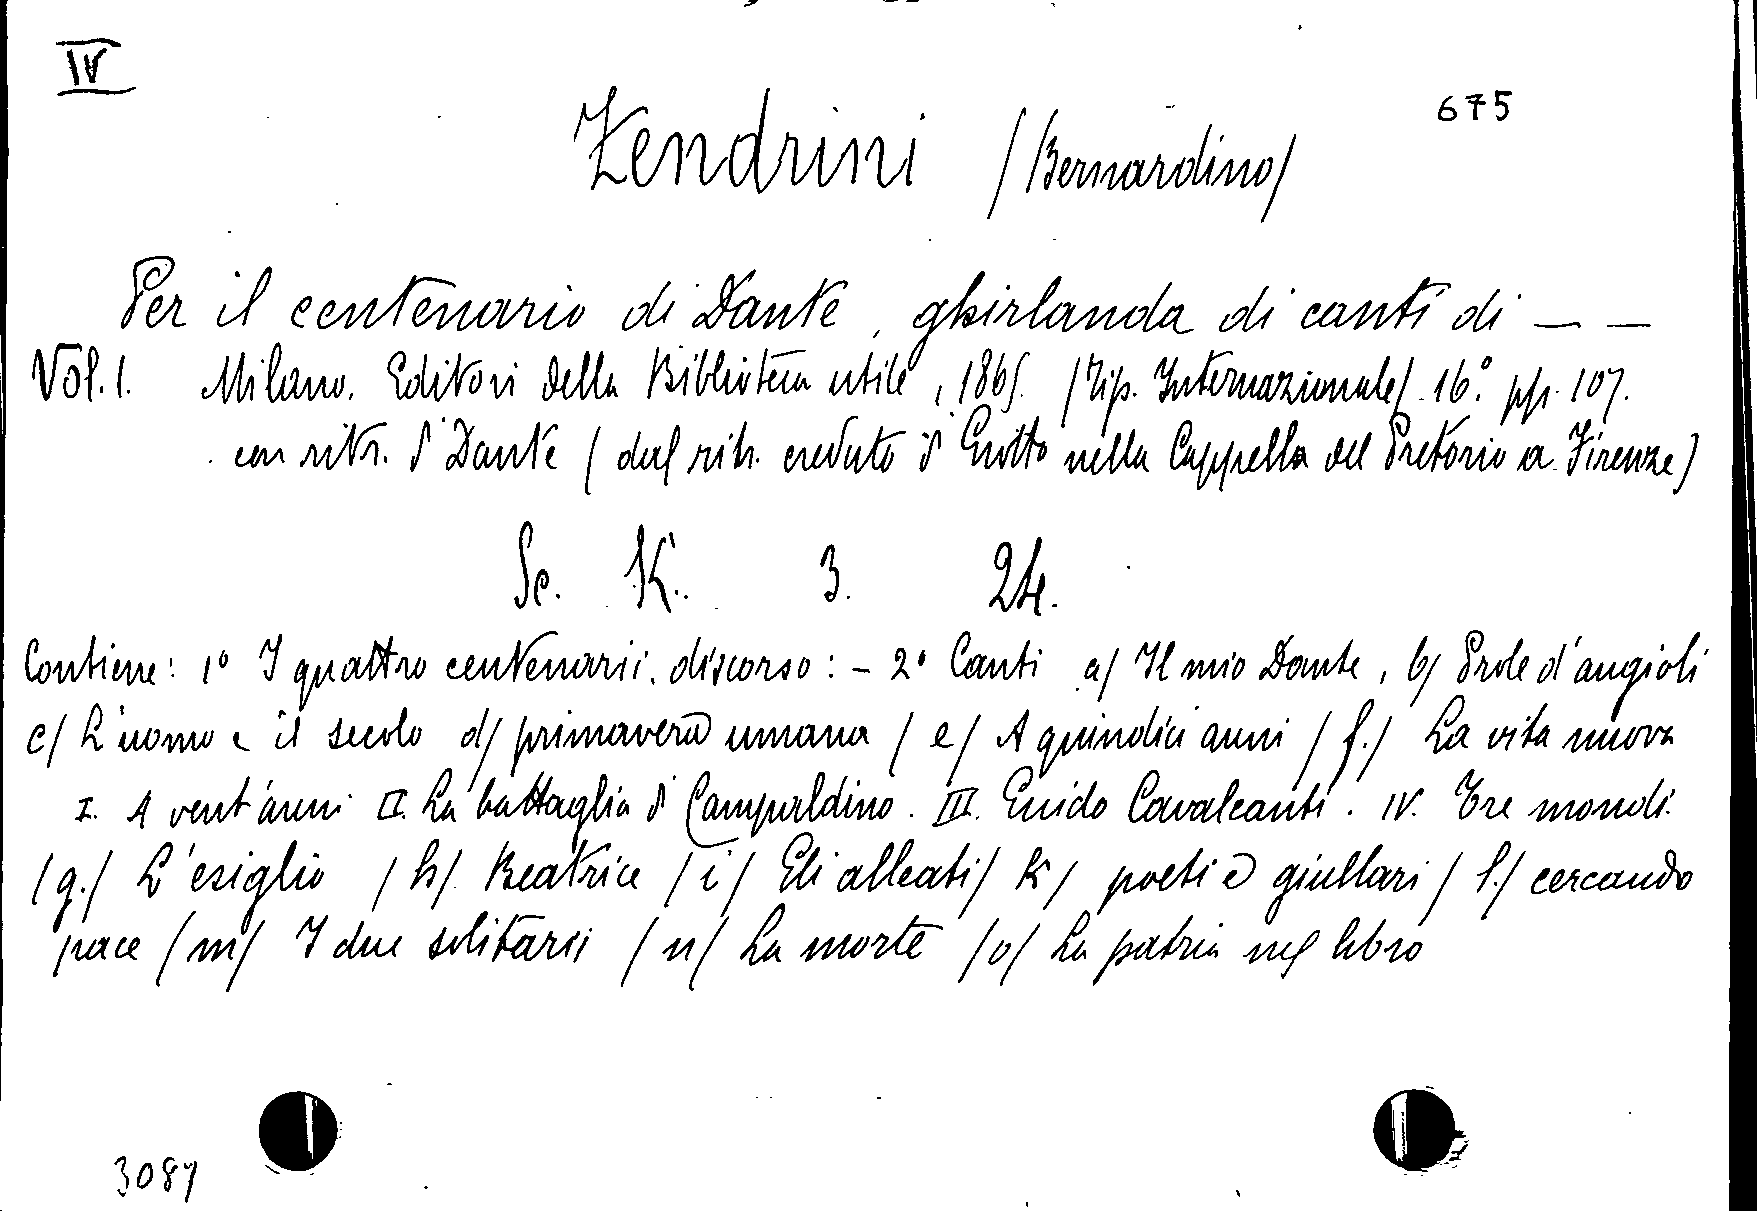 IV
675
Zendrini (Bernardino)
Per il centenario di Dante, ghirlanda di canti di — —
Vol. 1. Milano. Editori della Biblioteca utile, 1865. (Tip. Internazionale) 16.° pp. 107.
con ritr. di Dante (dal ritr. creduto di Giotto nella Cappella del Pretorio a Firenze)
Sc. K. 3. 24.
Contiene: 1° I quattro centenarii. discorso: - 2° Canti a/ Il mio Dante, b/ Prole d'angioli
c/ L'uomo e il secolo d/ primavera umana / e/ A quindici anni / f./ La vita nuova
I. A vent'anni II. La battaglia di Campaldino. III. Guido Cavalcanti. IV. Tre mondi.
/g./ L'esiglio /h/. Beatrice /i/ Gli alleati/ k/ poeti e giullari / l./ cercando
pace /m/ I due solitarii /n/ La morte /o/ La patria nel libro
3087